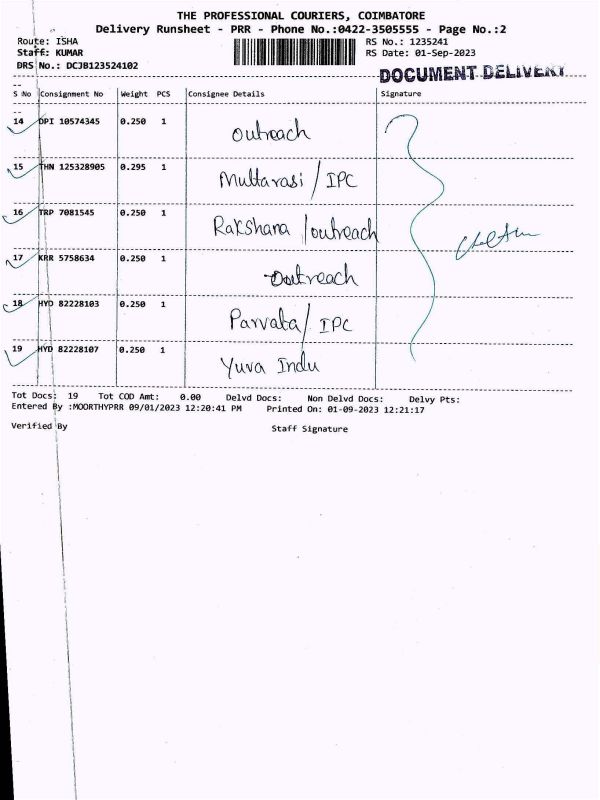 THE PROFESSIONAL COURIERS, COIMBATORE
Delivery Runsheet - PRR - Phone No.:0422-3505555 - Page No.:2
Route: ISHA RS No.: 1235241
Staff: KUMAR RS Date: 01-Sep-2023
DRS No.: DCJB123524102
DOCUMENT DELIVERY
S No Consignment No Weight PCS Consignee Details Signature
14 DPI 10574345 0.250 1 Outreach
15 THN 125328905 0.295 1 Muttarasi / IPC
16 TRP 7081545 0.250 1 Rakshana / outreach
17 KRR 5758634 0.250 1 Outreach
18 HYD 82228103 0.250 1 Parvata / IPC
19 HYD 82228107 0.250 1 Yuva Indu
Tot Docs: 19 Tot COD Amt: 0.00 Delvd Docs: Non Delvd Docs: Delvy Pts:
Entered By :MOORTHYPRR 09/01/2023 12:20:41 PM Printed On: 01-09-2023 12:21:17
Verified By Staff Signature